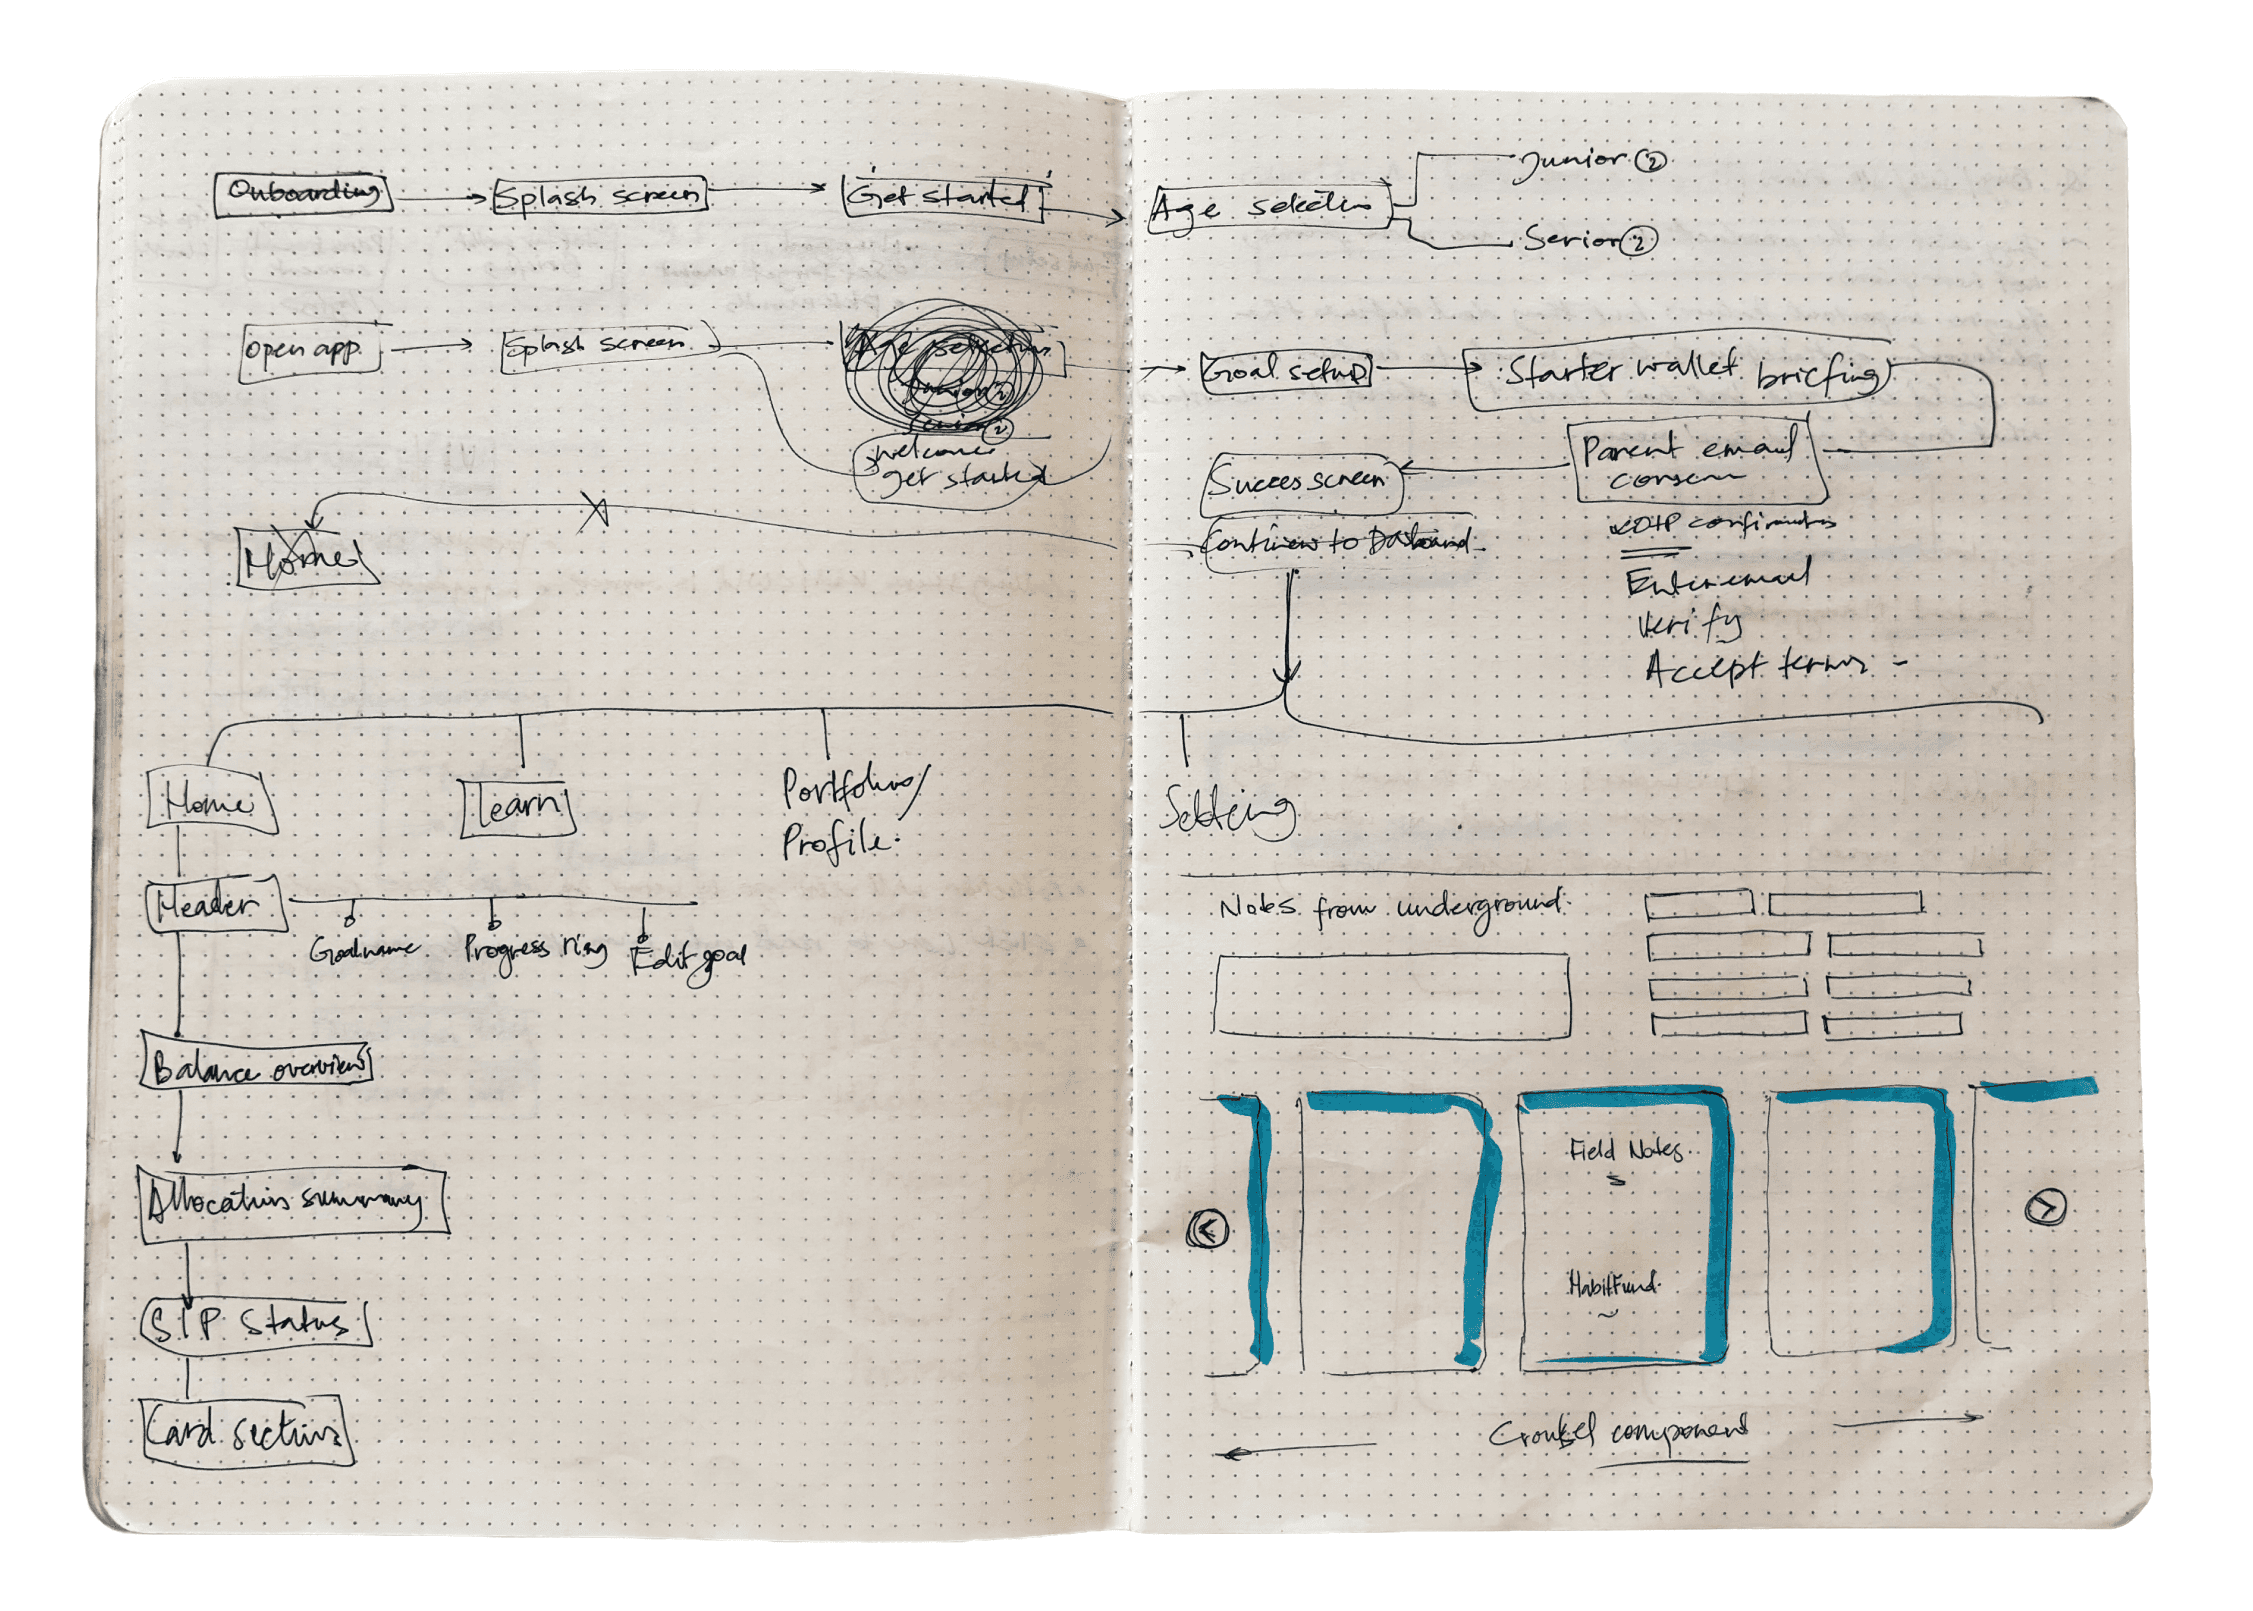 Onboarding
Splash screen
Get started
Age selection
Junior 2
Senior 2
open app
Splash screen
Age selection
Junior 2
Senior 2
welcome
get started
Goal setup
Starter wallet briefing
Parent email
Succes screen
OTP
Enter email
Verify
Accept terms
Home
Continue to
Home
Learn
Portfolio/
Profile.
Setting
Header
Goal name
Progress ring
Edit goal
Balance overview
Allocation summary
SIP Status
Card section
Notes from underground.
Field Notes
HabitFund
component